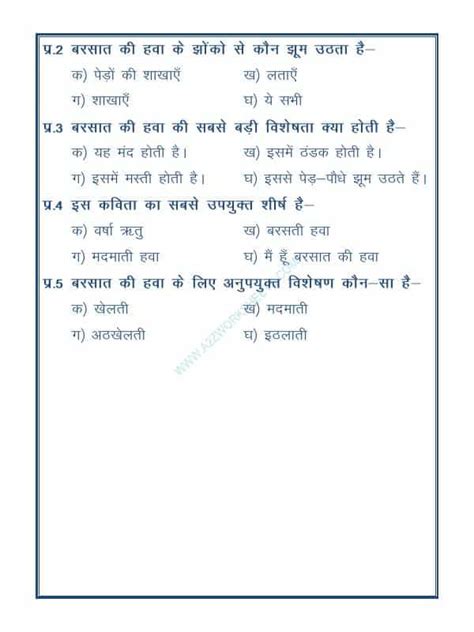 प्र.2 बरसात की हवा के झोंको से कौन झूम उठता है–
क) पेड़ों की शाखाएँ ख) लताएँ
ग) शाखाएँ घ) ये सभी
प्र.3 बरसात की हवा की सबसे बड़ी विशेषता क्या होती है–
क) यह मंद होती है। ख) इसमें ठंडक होती है।
ग) इसमें मस्ती होती है। घ) इससे पेड़–पौधे झूम उठते हैं।
प्र.4 इस कविता का सबसे उपयुक्त शीर्ष है–
क) वर्षा ऋतु ख) बरसती हवा
ग) मदमाती हवा घ) मैं हूँ बरसात की हवा
प्र.5 बरसात की हवा के लिए अनुपयुक्त विशेषण कौन–सा है–
क) खेलती ख) मदमाती
ग) अठखेलती घ) इठलाती